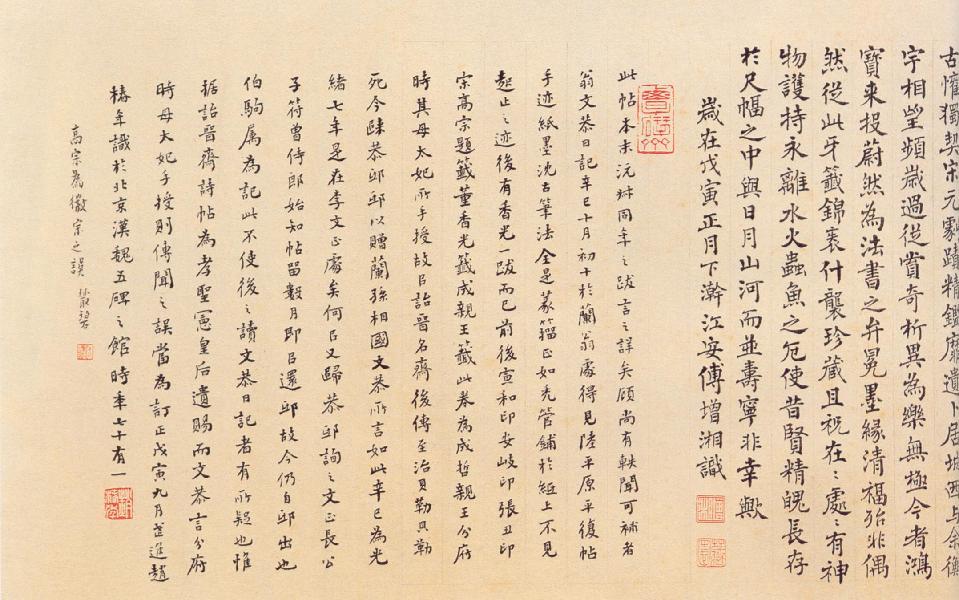 古懽獨契宋元劇蹟精鑑靡遺卜居城西与余衡
宇相望頻歲過從賞奇析異為樂無極今者鴻
寶來投蔚然為法書之弁冕墨緣清福殆非偶
然從此牙籤錦裹什襲珍藏且祝在々處々有神
物護持永離水火蟲魚之厄使昔賢精魄長存
於尺幅之中與日月山河而並壽寧非幸歟
歲在戊寅正月下澣江安傅增湘識
此帖本末沅叔同年之跋言之詳矣顧尚有軼聞可補者
翁文恭日記辛巳十月初十於蘭翁處得見陸平原平復帖
手迹紙墨沈古筆法全是篆籀正如禿管鋪於紙上不見
起止之迹後有香光一跋而已前後宣和印安岐印張丑印
宋高宗題籤董香光籤成親王籤此卷為成哲親王分府
時其母太妃所手授故㠯詒晉名齋後傳至治貝勒貝勒
死今歸恭邸邸以贈蘭孫相國文恭所言如此辛巳為光
緒七年是在李文正處矣何㠯又歸恭邸詢之文正長公
子符曾侍郎始知帖留數月即㠯還邸故今仍自邸出也
伯駒属為記此不使後之讀文恭日記者有所疑也惟
据詒晉齋詩帖為孝聖憲皇后遺賜而文恭言分府
時母太妃手授則傳聞之誤當為訂正戊寅九月武進趙
椿年識於北京漢魏五碑之館時年七十有一
高宗為徽宗之誤